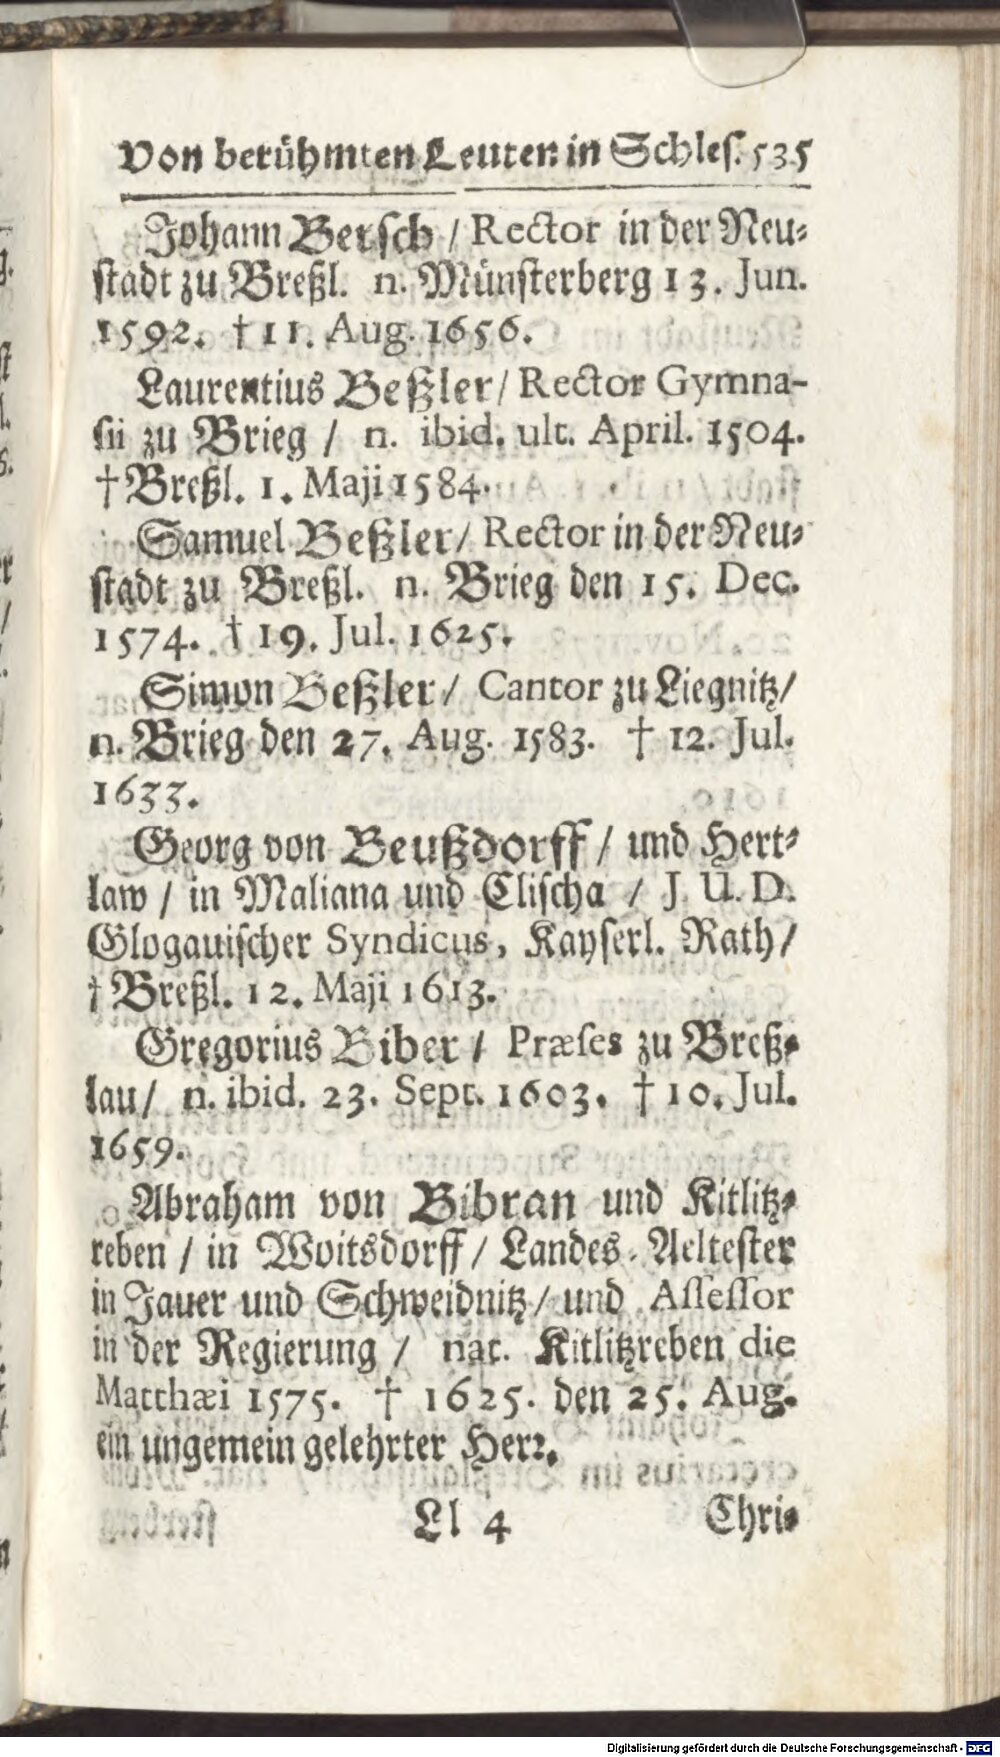 Von berühmten Leuten in Schles. 535
Johann Bersch / Rector in der Neu⸗
stadt zu Breßl. n. Münsterberg 13. Jun.
1592. † 11. Aug. 1656.
Laurentius Beßler / Rector Gymna-
sii zu Brieg / n. ibid. ult. April. 1504.
† Breßl. 1. Maji 1584.
Samuel Beßler / Rector in der Neu⸗
stadt zu Breßl. n. Brieg den 15. Dec.
1574. † 19. Jul. 1625.
Simon Beßler / Cantor zu Liegnitz /
n. Brieg den 27. Aug. 1583. † 12. Jul.
1633.
Georg von Beußdorff / und Hert⸗
law / in Maliana und Clischa / J. U. D.
Glogauischer Syndicus, Kayserl. Rath /
† Breßl. 12. Maji 1613.
Gregorius Biber / Præses zu Breß⸗
lau / n. ibid. 23. Sept. 1603. † 10. Jul.
1659.
Abraham von Bibran und Kitlitz⸗
reben / in Woitsdorff / Landes⸗Aeltester
in Jauer und Schweidnitz / und Assessor
in der Regierung / nat. Kitlitzreben die
Matthæi 1575. † 1625. den 25. Aug.
ein ungemein gelehrter Herr.
Ll 4 Chri⸗
Digitalisierung gefördert durch die Deutsche Forschungsgemeinschaft - DFG